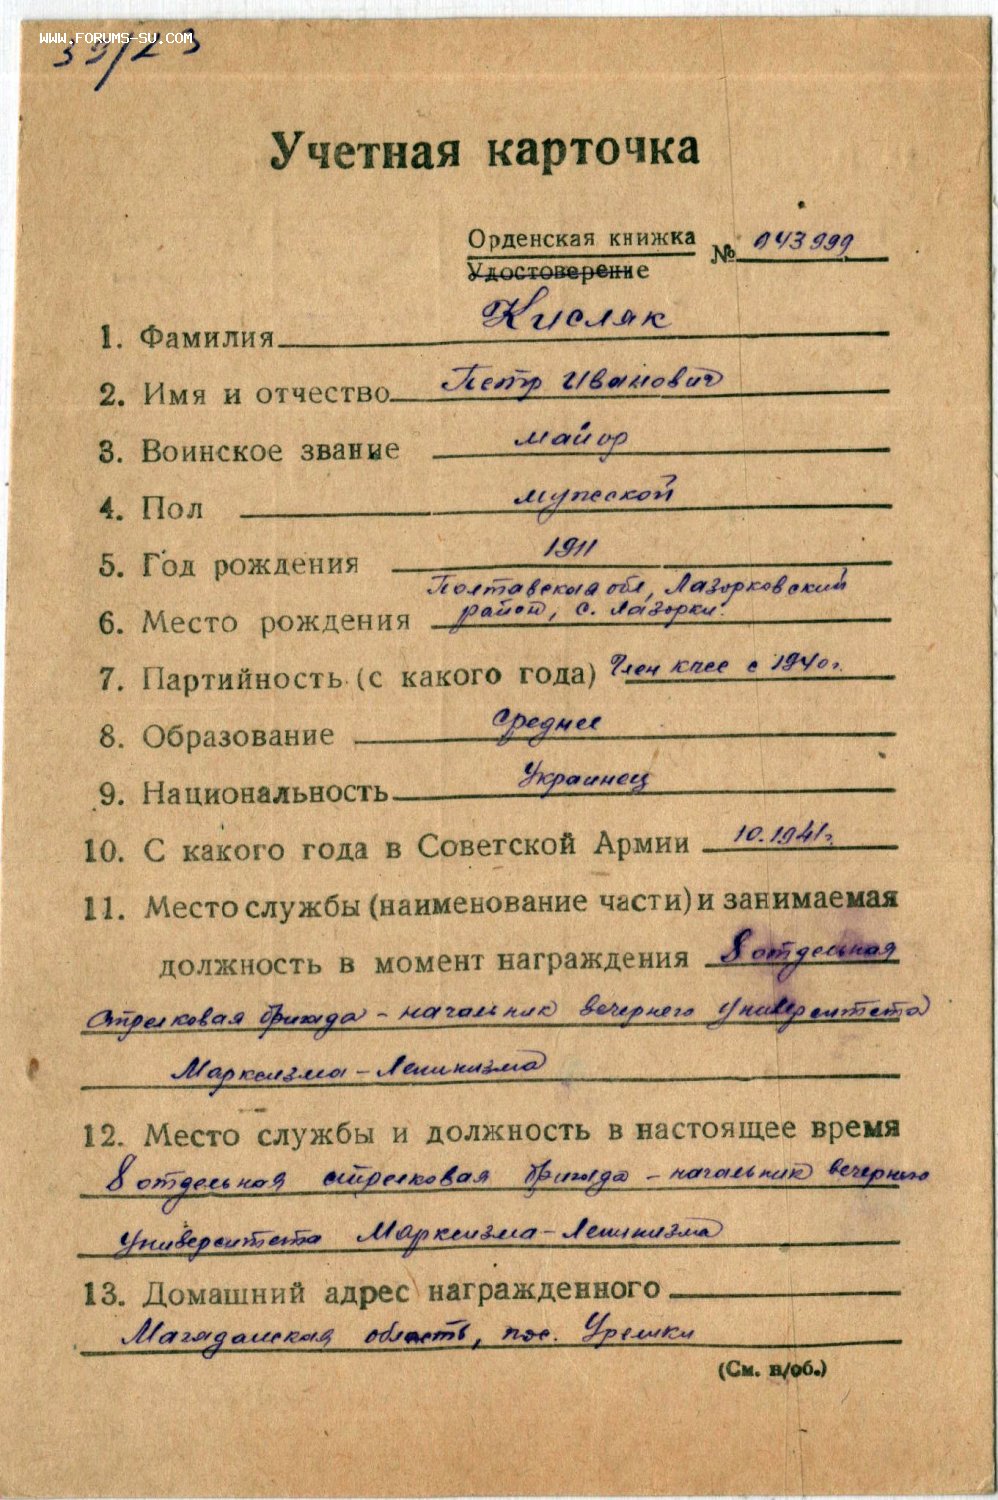 WWW.FORUMS-SU.COM
39/23
Учетная карточка
Орденская книжка
Удостоверение
№ 043999
1. Фамилия Кисляк
2. Имя и отчество Петр Иванович
3. Воинское звание майор
4. Пол мужской
5. Год рождения 1911
Полтавская обл, Лазорковский
6. Место рождения район, с. Лазорки.
7. Партийность (с какого года) Член КПСС с 1940 г.
8. Образование среднее
9. Национальность Украинец
10. С какого года в Советской Армии 10.1941 г.
11. Место службы (наименование части) и занимаемая
должность в момент награждения 8 отдельная
стрелковая бригада - начальник вечернего университета
Марксизма-Ленинизма
12. Место службы и должность в настоящее время
8 отдельная стрелковая бригада - начальник вечернего
университета Марксизма-Ленинизма
13. Домашний адрес награжденного
Магаданская область, пос.
(См. н/об.)